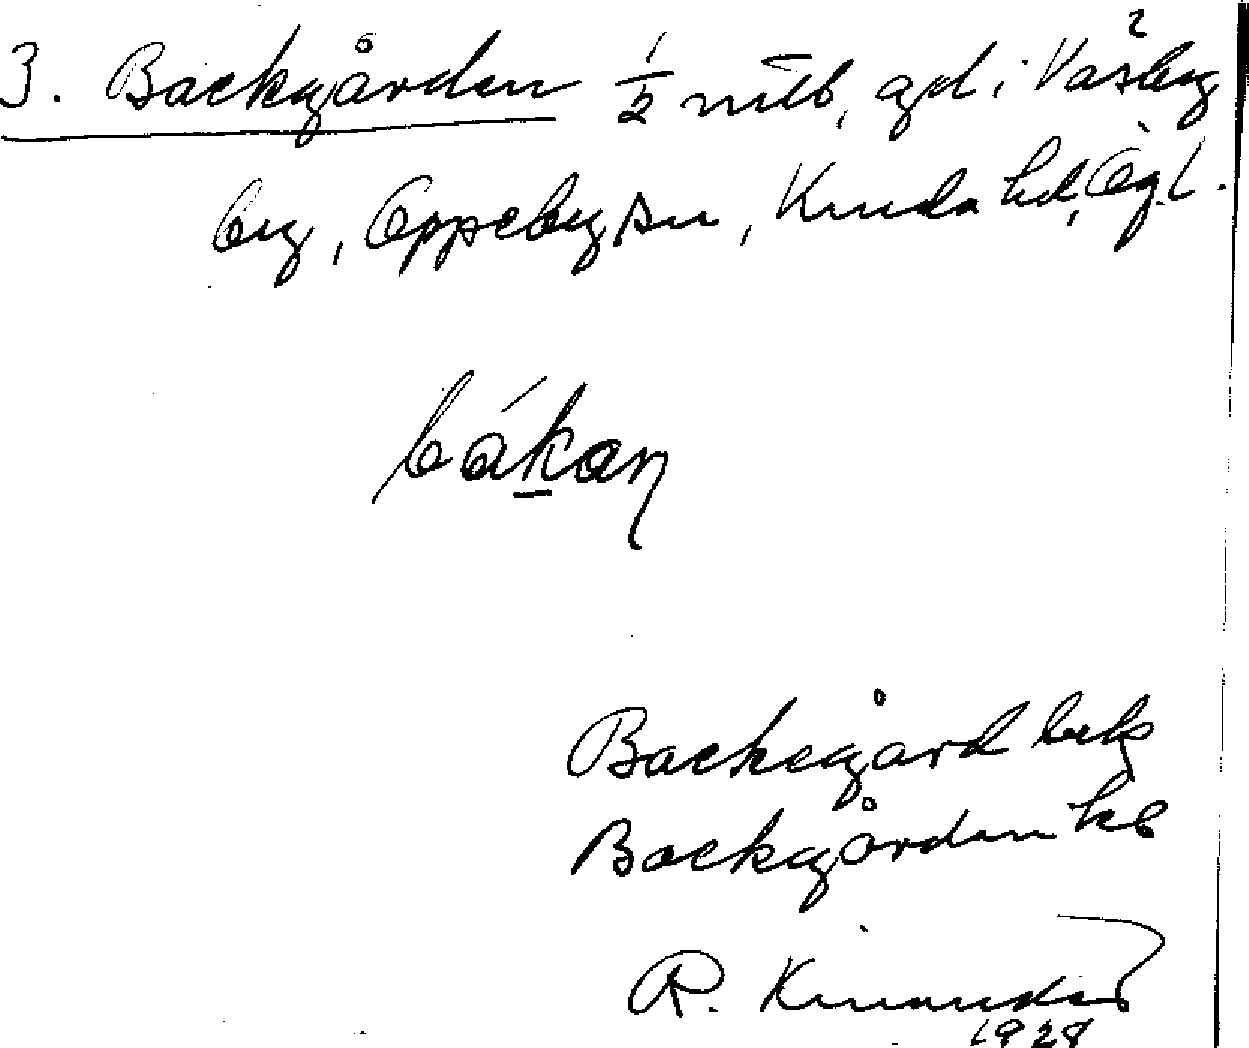 3. Backgården 1/2 mtl, gd i Väsby
by, Oppeby sn, Kinda hd, Ögl.
bákan
Backegård bek
Backgården
R. Kinander
1928